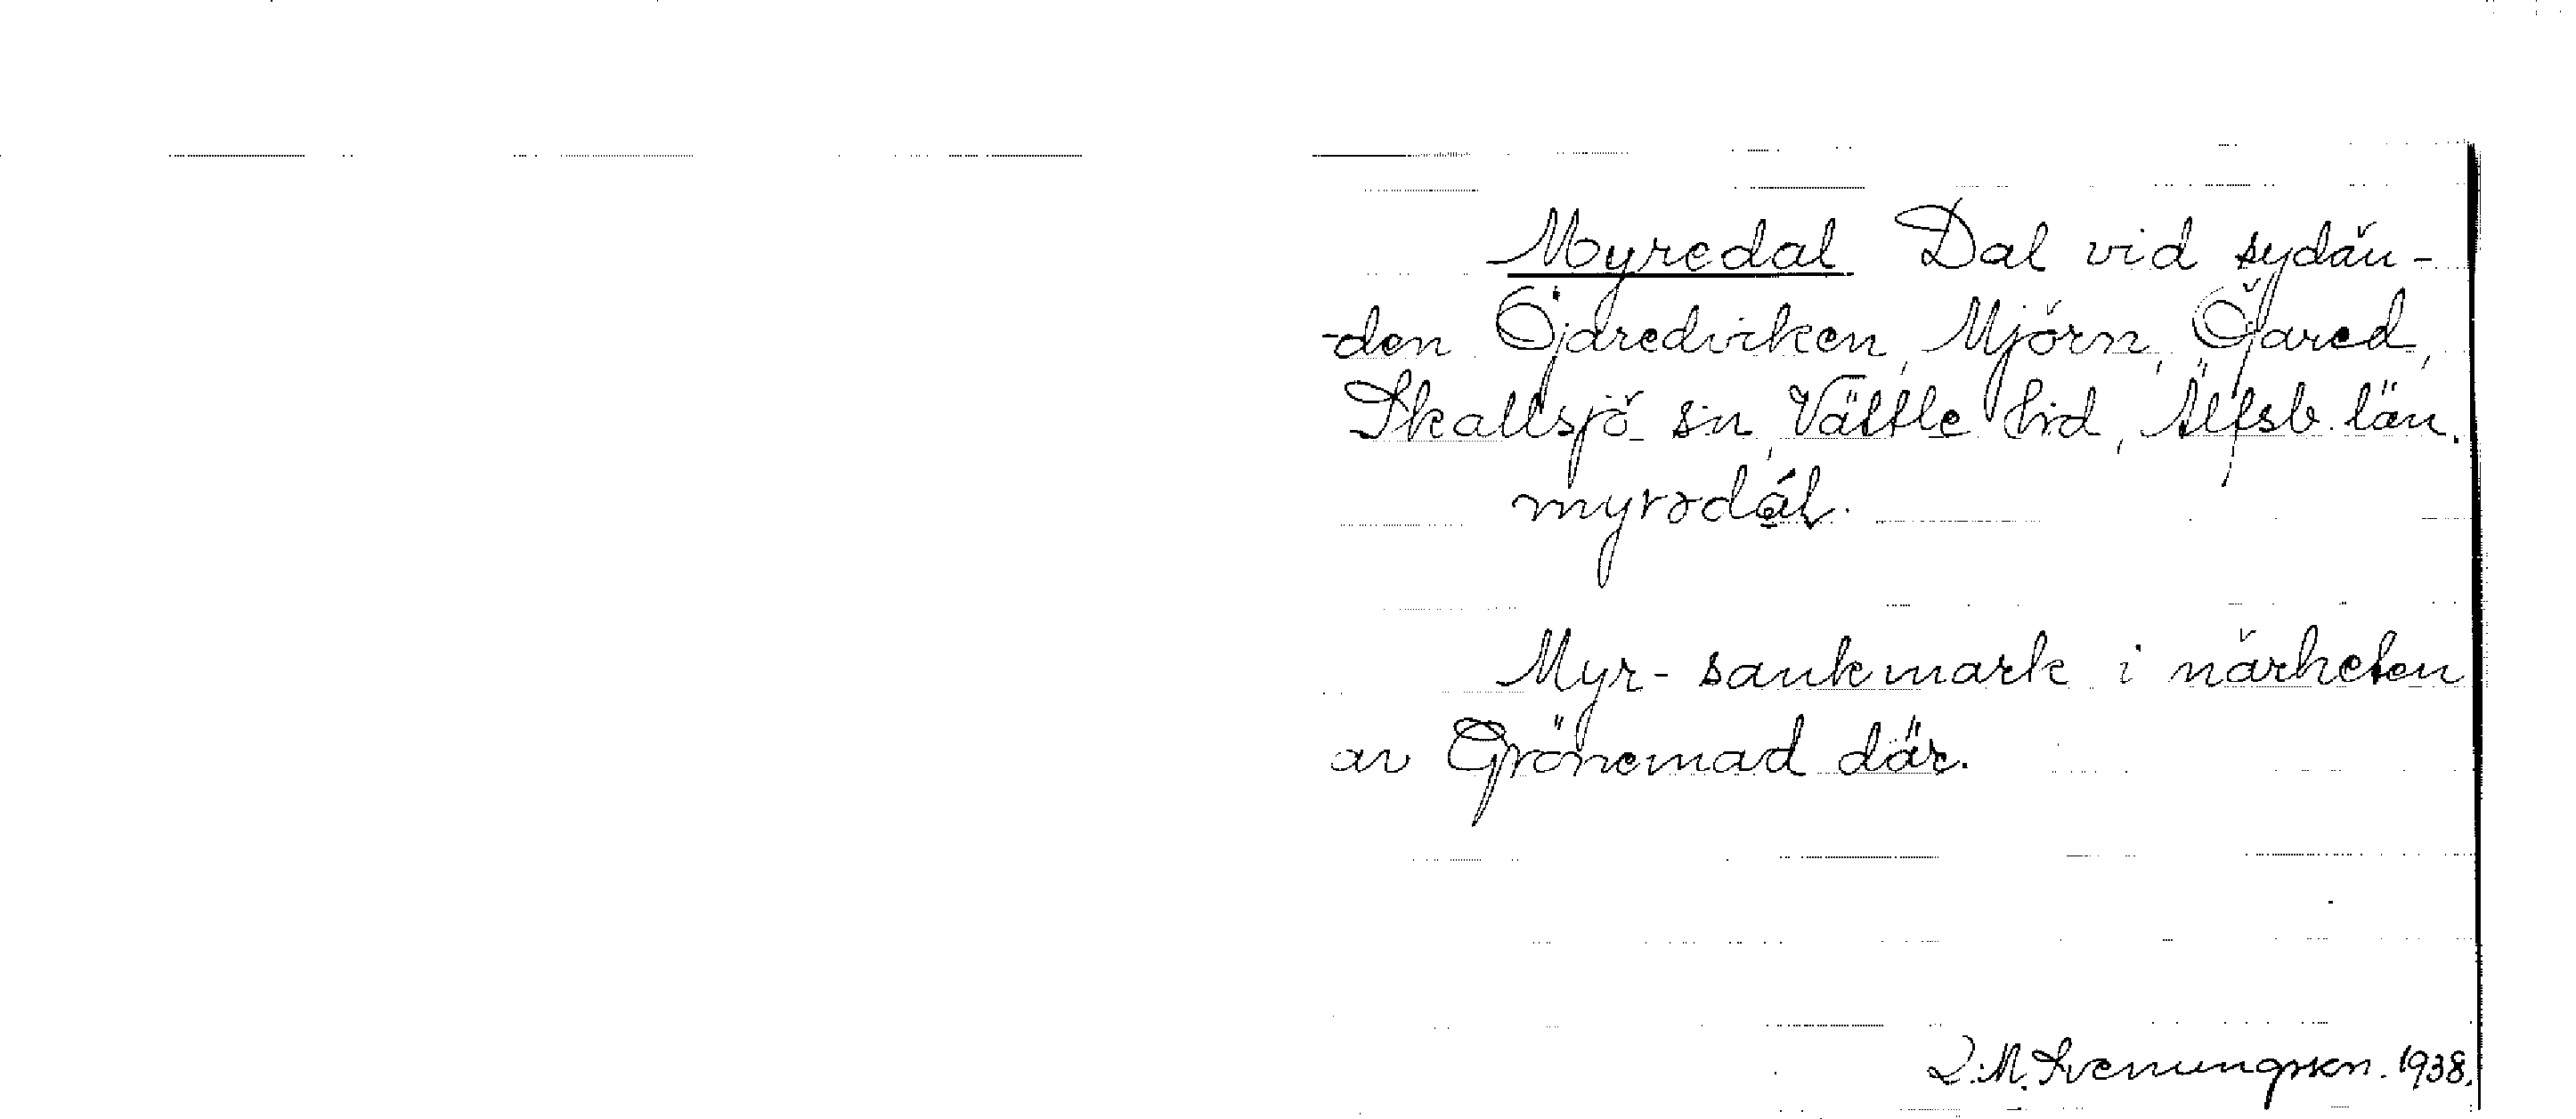 Myredal Dal vid sydän-
-den Öjaredviken, Mjörn, Öjared,
Skallsjö sn, Vättle hd, Älfsb. län.
myrədál.
Myr- sankmark i närheten
av Grönemad där.
D.M. Svenungsson. 1938.